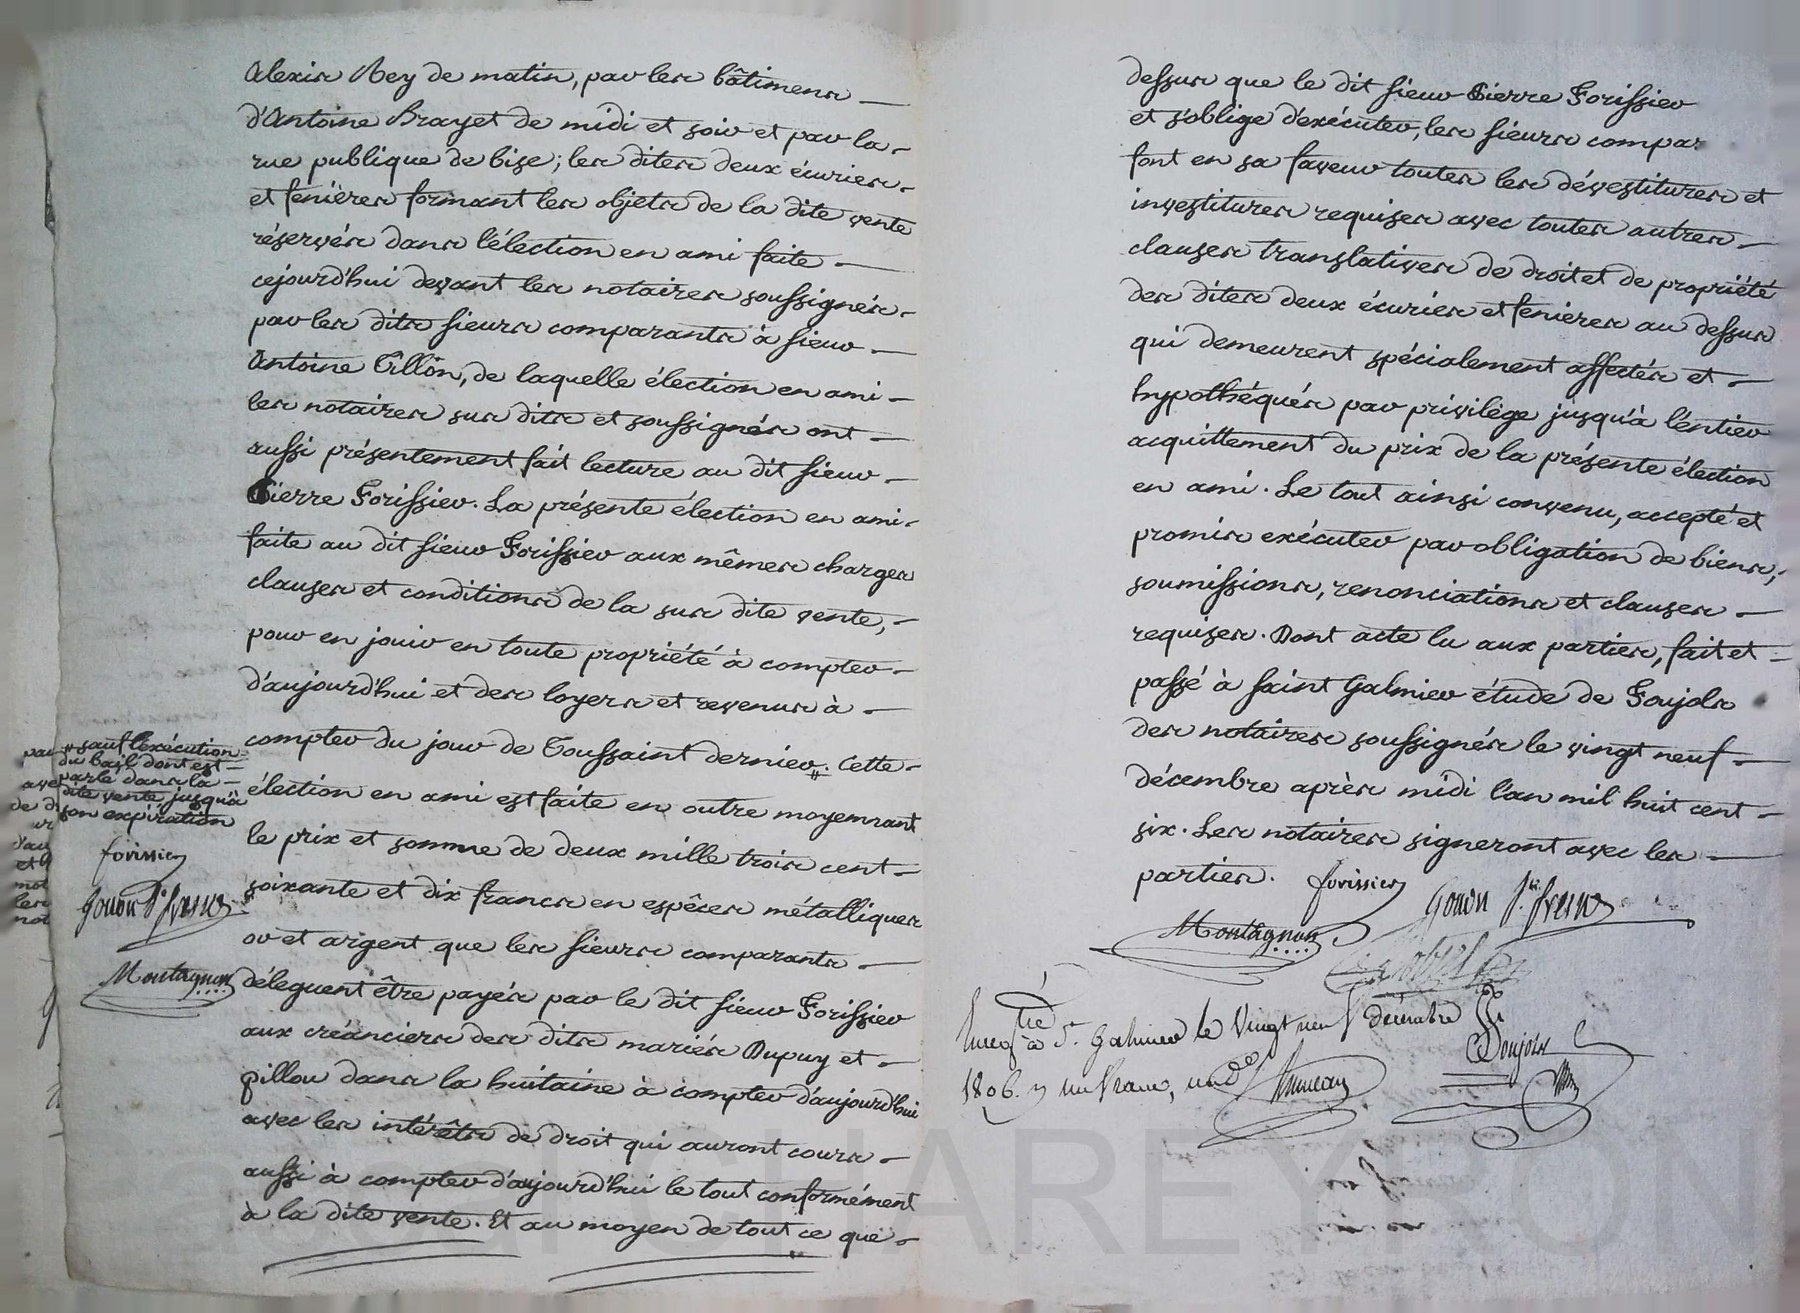 Alexis Rey de matin, par les bâtimens
d'Antoine Brayet de midi et soir et par la
rue publique de bize; les dites deux écuries
et fenières formant les objets de la dite vente
réservés dans l'élection en ami faite
cejourd'hui devant les notaires soussignés
par les dits sieurs comparants à sieur
Antoine Tillon, de laquelle élection en ami
les notaires sus dits et soussignés ont
aussi présentement fait lecture au dit sieur
Pierre Forissier. La présente élection en ami
faite au dit sieur Forissier aux mêmes charges
clauses et conditions de la sus dite vente,
pour en jouir en toute propriété à compter
d'aujourd'hui et des loyers et revenus à
compter du jour de Toussaint dernier. Cette
élection en ami est faite en outre moyennant
le prix et somme de deux mille trois cent
soixante et dix francs en espèces métalliques
or et argent que les sieurs comparants
déleguent être payés par le dit sieur Forissier
aux créanciers des dits mariés Dupuy et
pillou dans la huitaine à compter d'aujourd'hui
avec les intérêts de droit qui auront cours
aussi à compter d'aujourd'hui le tout conformément
à la dite vente. Et au moyen de tout ce que
sauf l'exécution
du bail dont est
parlé dans la
dite vente jusqu'à
son expiration
forissier
Gonon St. fresne
Montagnon
dessus que le dit sieur Pierre Forissier
et s'oblige d'exécuter, les sieurs compar
font en sa faveur toutes les dévestitures et
investitures requises avec toutes autres
clauses translatives de droit et de propriété
des dites deux écuries et fenières au dessus
qui demeurent spécialement affectés et
hypothéqués par privilège jusqu'à l'entier
acquittement du prix de la présente élection
en ami. Le tout ainsi convenu, accepté et
promis exécuter par obligation de biens,
soumissions, renonciations et clauses
requises. Dont acte lu aux parties, fait et
passé à Saint Galmier étude de Foujols
des notaires soussignés le vingt neuf
décembre après midi l'an mil huit cent
six. Les notaires signeront avec les
parties. forissier Gonon St. fresne
Montagnon
Enregtré à St. Galmier le Vingt neuf décembre
1806. un franc, Foujols
CHAREYRON